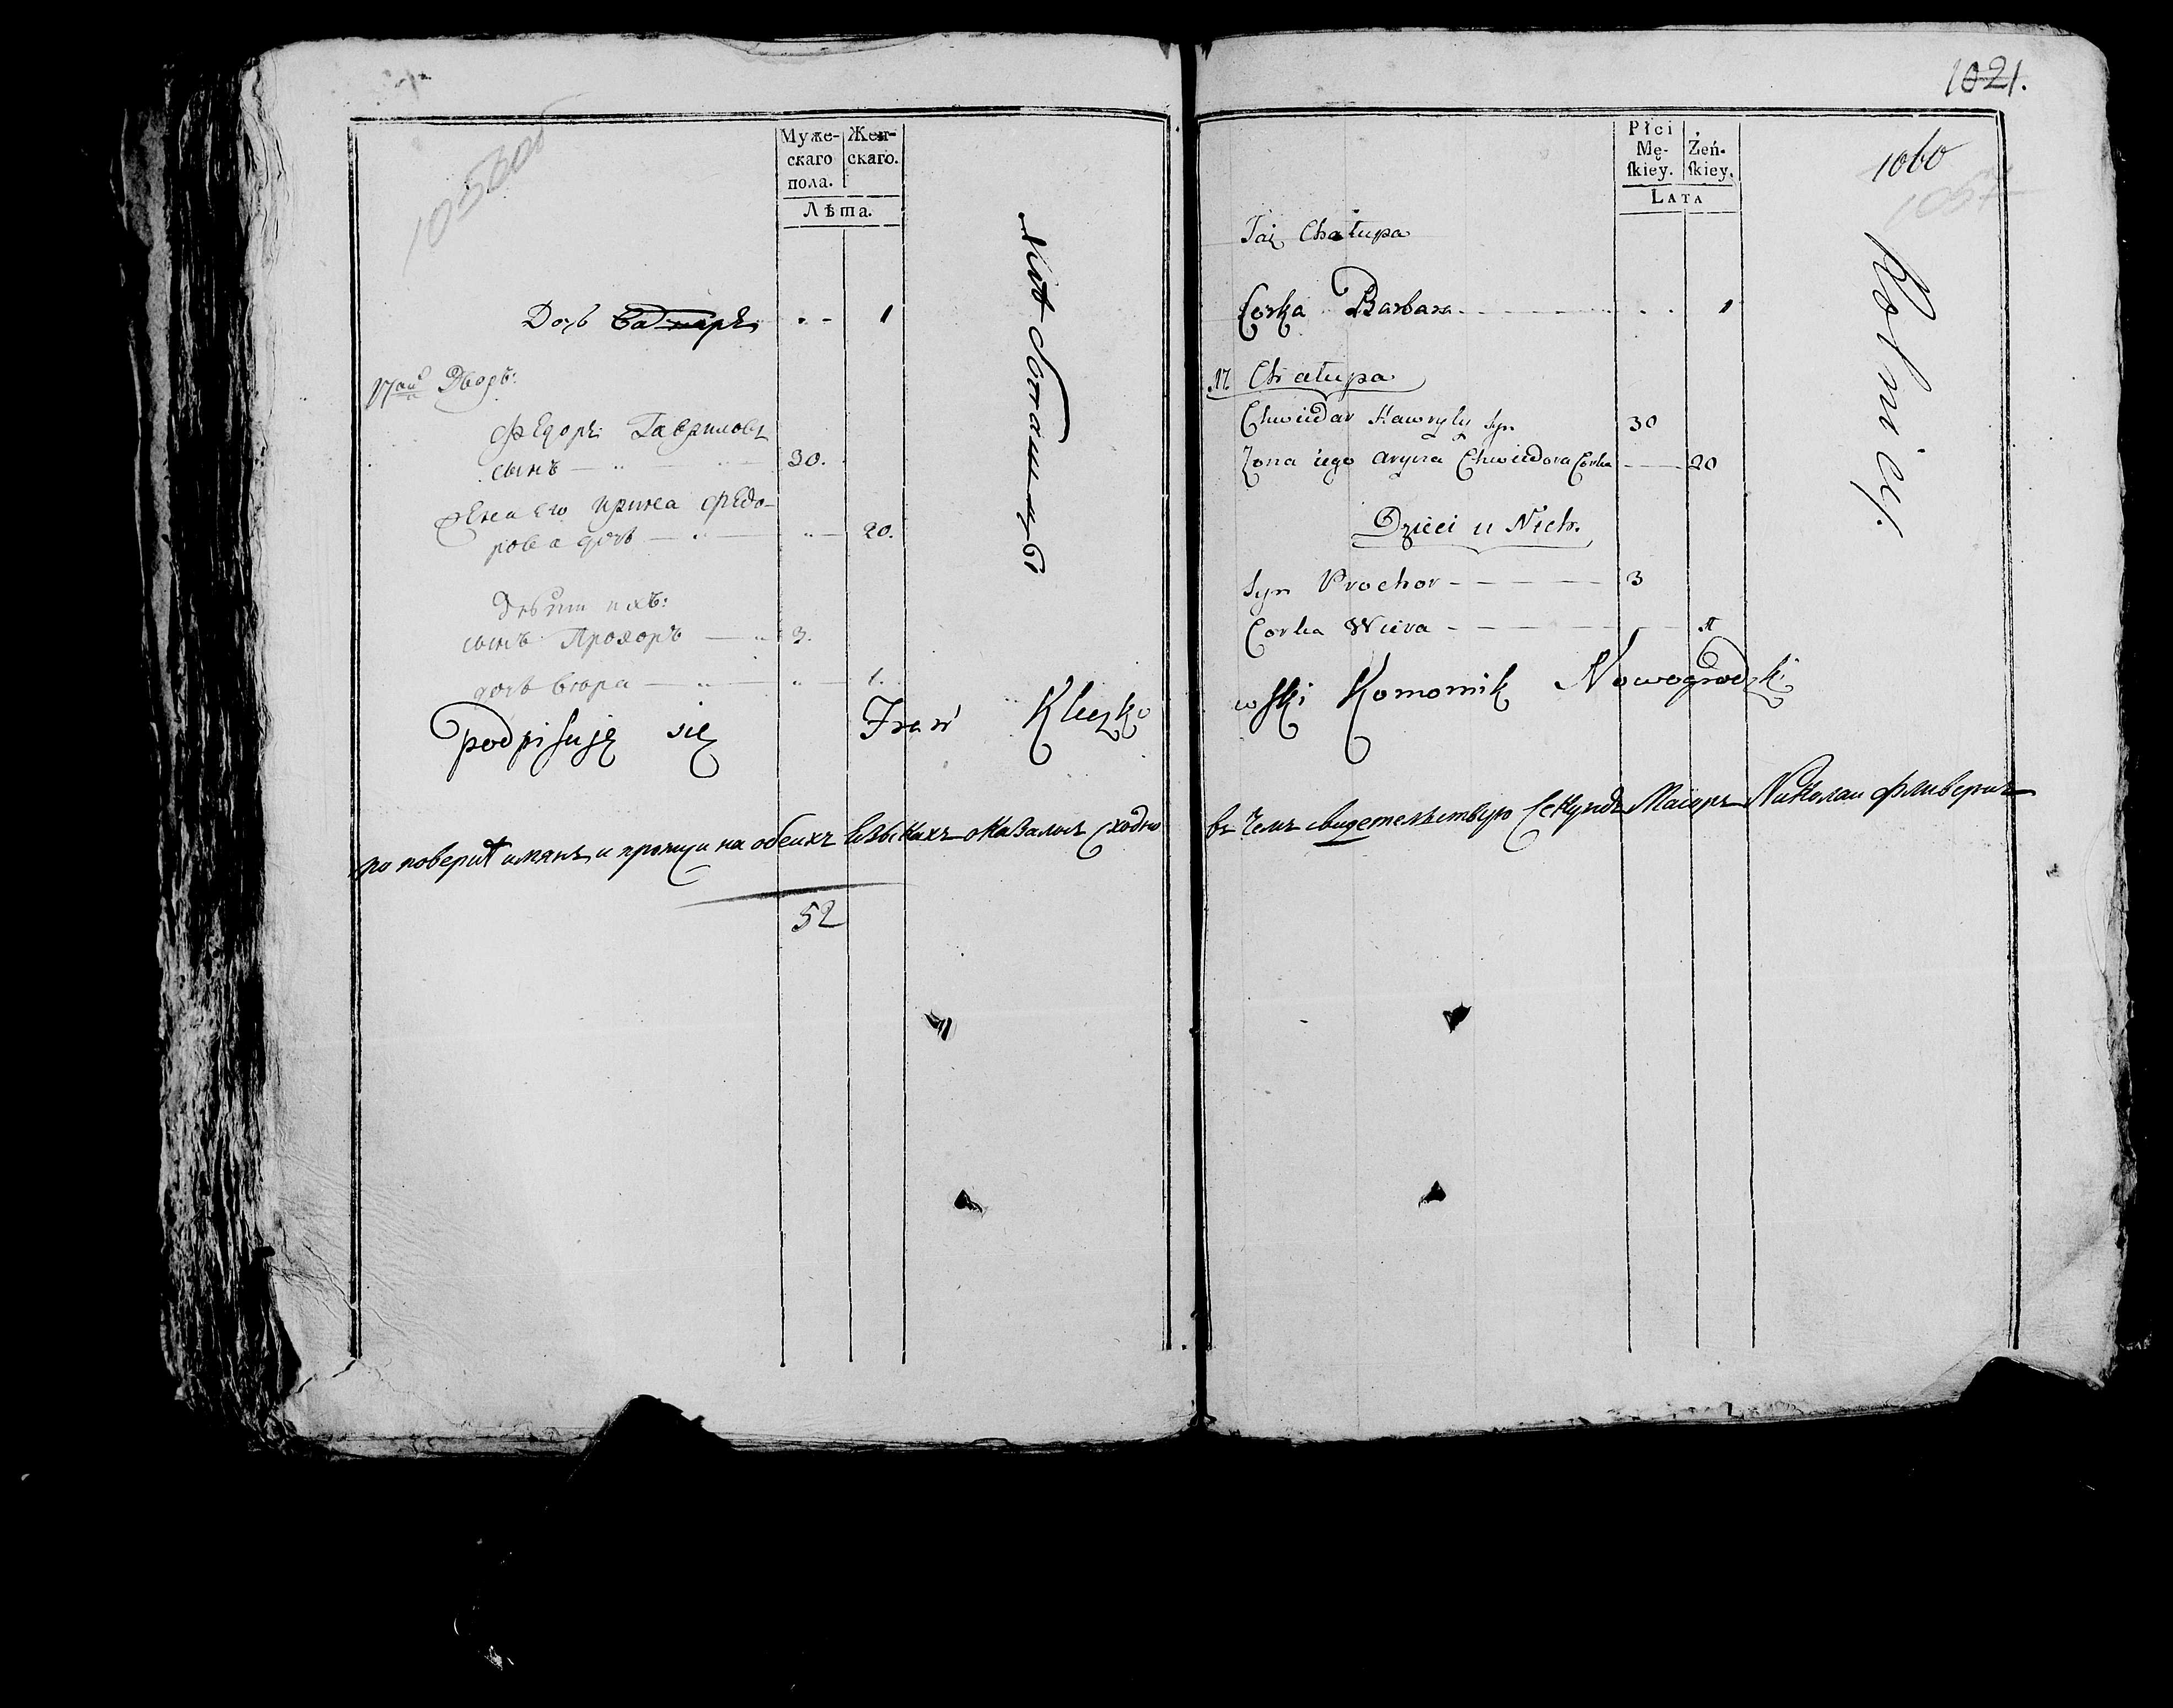 Муже-
скаго
пола.
Жен-
скаго.
Лѣта.
Дочь
1
17 Дворъ:
Федоръ Гавриловъ
сынъ 30.
Жена его Ирина Федо-
рова дочь 20.
Дѣти ихъ:
сынъ Прохоръ 3.
дочь 1.
podpisuję się Jran Kleczko
по поверке имянъ и прочи на обеихъ Езыкахъ оказалось сходно
52
1021.
1060
1057
Płci
Mę-
ſkiey.
Żeń-
ſkiey.
LATA
Taż Chałupa
Corka Barbara 1
17 Chałupa
Chwiedor Hawryły Syn 30
Zona iego Aryna Chwiedora Corka 20
Dzieci u Nich.
Syn Prochor 3
Corka Wiera 1
wski Komornik Nowogrodzki
въ чемъ свидетельствую Секундъ Маіоръ Николай